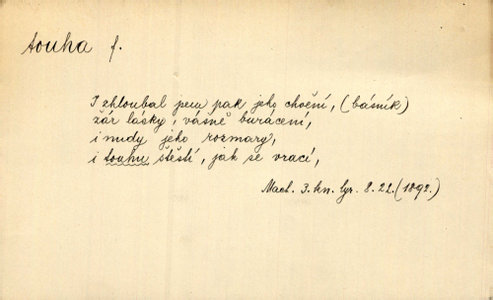 touha f.
I zhloubal peru pak jeho chvění, (básník)
žár lásky, vášně burácení,
i nudy jeho rozmary,
i touhu štěstí, jak se vrací,
Macl. 3. kn. lyr. 8. 22. (1892.)